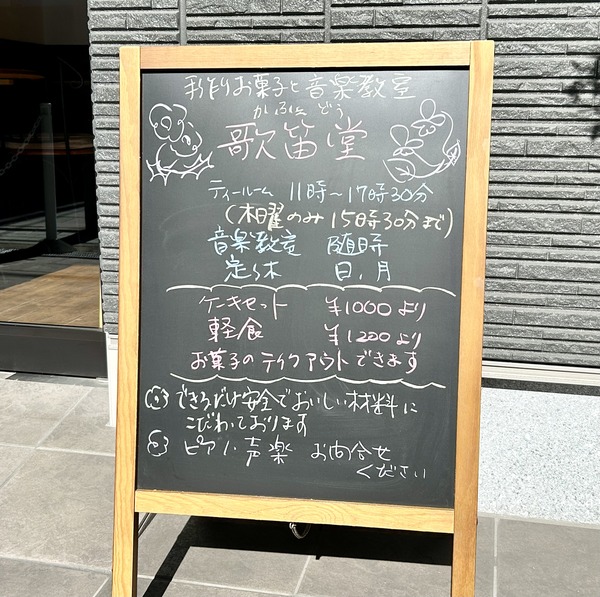 手作りお菓子と音楽教室
かふえ どう
歌笛堂
ティールーム 11時〜17時30分
(木曜のみ 15時30分まで)
音楽教室 随時
定休 日、月
ケーキセット ¥1000より
軽食 ¥1200より
お菓子のテイクアウトできます
できるだけ安全でおいしい材料に
こだわっております
ピアノ・声楽 お問合せ
ください